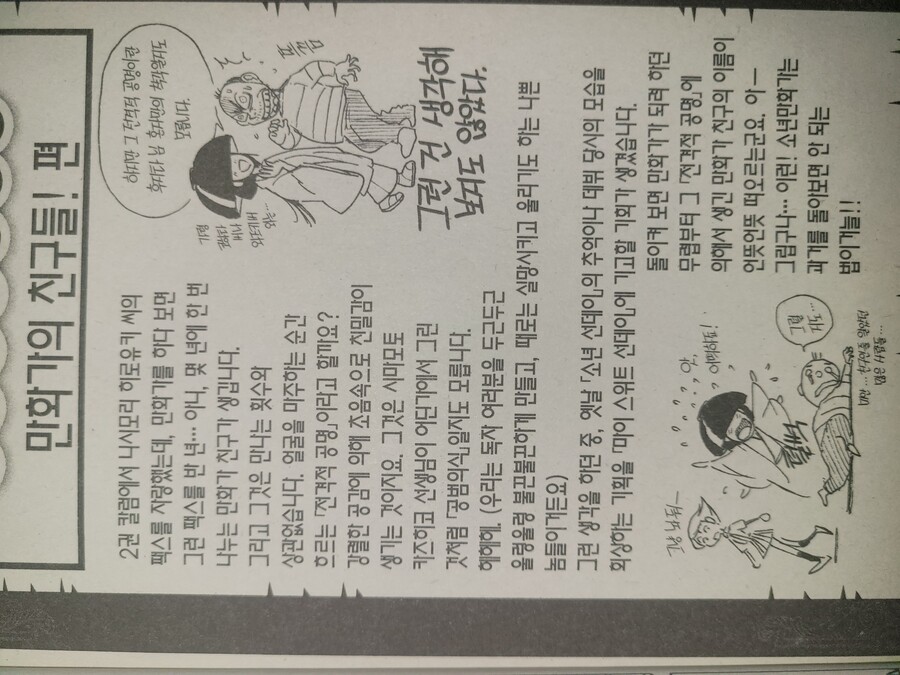 만화가의 친구들! 편
2권 칼럼에서 니시모리 히로유키 씨의
팩스를 자랑했는데, 만화가를 하다 보면
그런 팩스를 반 년… 아니, 몇 년에 한 번
나누는 만화가 친구가 생깁니다.
그리고 그것은 만나는 횟수와
상관없습니다. 얼굴을 마주하는 순간
흐르는 「전격적 공명」이라고 할까요?
강렬한 공감에 의해 초음속으로 친밀감이
생기는 것이지요. 그것은 시마모토
카즈히코 선생님이 어딘가에서 그린
것처럼 「공범의식」일지도 모릅니다.
헤헤헤. (우리는 독자 여러분을 두근두근
울렁울렁 불끈불끈하게 만들고, 때로는 실망시키고 울리기도 하는 나쁜
놈들이거든요)
그런 생각을 하던 중, 옛날 「소년 선데이」의 추억이나 데뷔 당시의 모습을
회상하는 기획을 「마이 스위트 선데이」에 기고할 기회가 생겼습니다.
돌이켜 보면 만화가가 되려 하던
무렵부터 그 「전격적 공명」에
의해서 생긴 만화가 친구의 이름이
언뜻언뜻 떠오르는군요. 아―
그립구나… 이런! 소년만화가는
과거를 돌아보면 안 되는
법이거늘!!
하지만 그 전격적 공명이란
후지타 님 혼자만의 착각일지도
모릅니다.
뜨끔
그런 건 생각해
보지도 않았다.
그냥 놔둬―
앗,
어떡하죠!
털썩
그럴
지도…